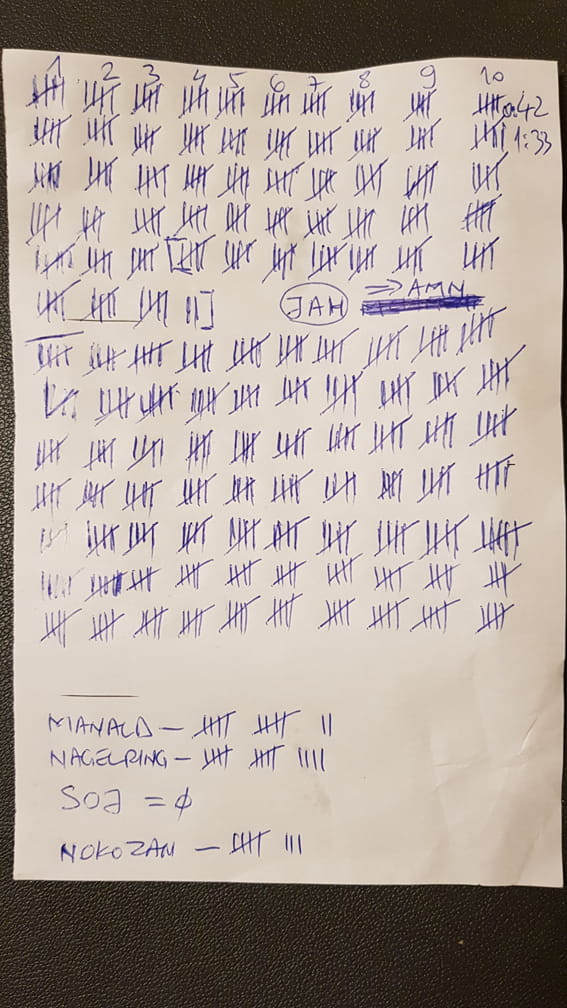 1 2 3 4 5 6 7 8 9 10
0:42
1:33
JAH ⇒ AMN
MANALD –
NAGELRING – IIII
SOJ = ϕ
NOKOZAN – III